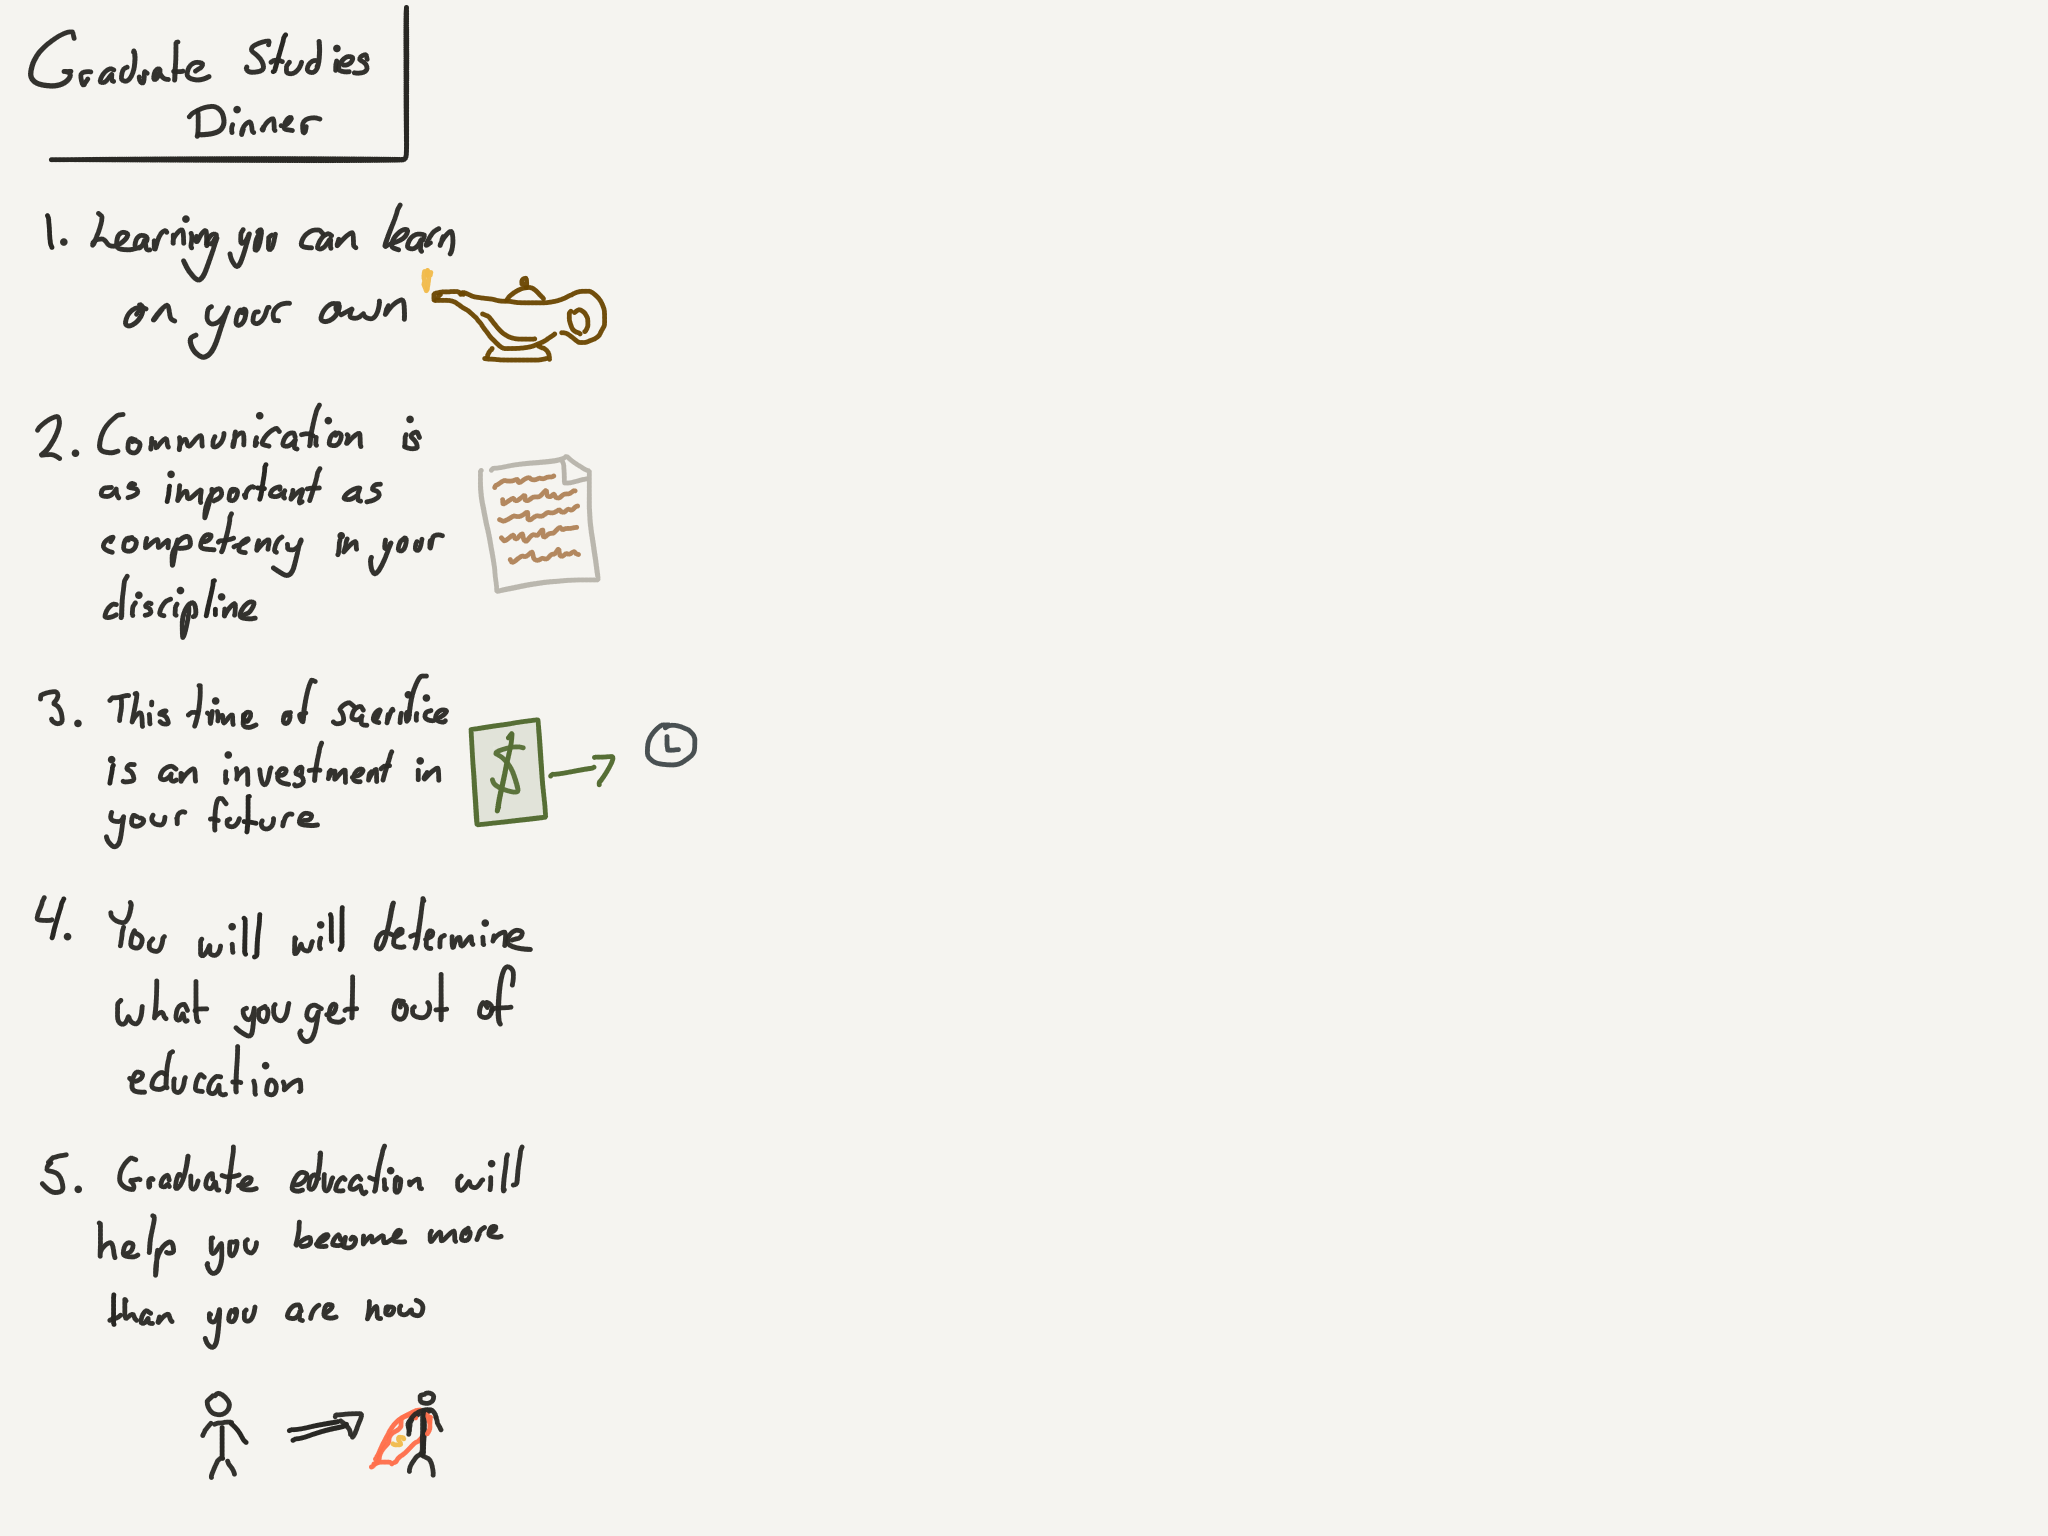 Graduate Studies
Dinner
1. Learning you can learn
on your own
2. Communication is
as important as
competency in your
discipline
3. This time of sacrifice
is an investment in
your future
$
4. You will will determine
what you get out of
education
5. Graduate education will
help you become more
than you are now
S